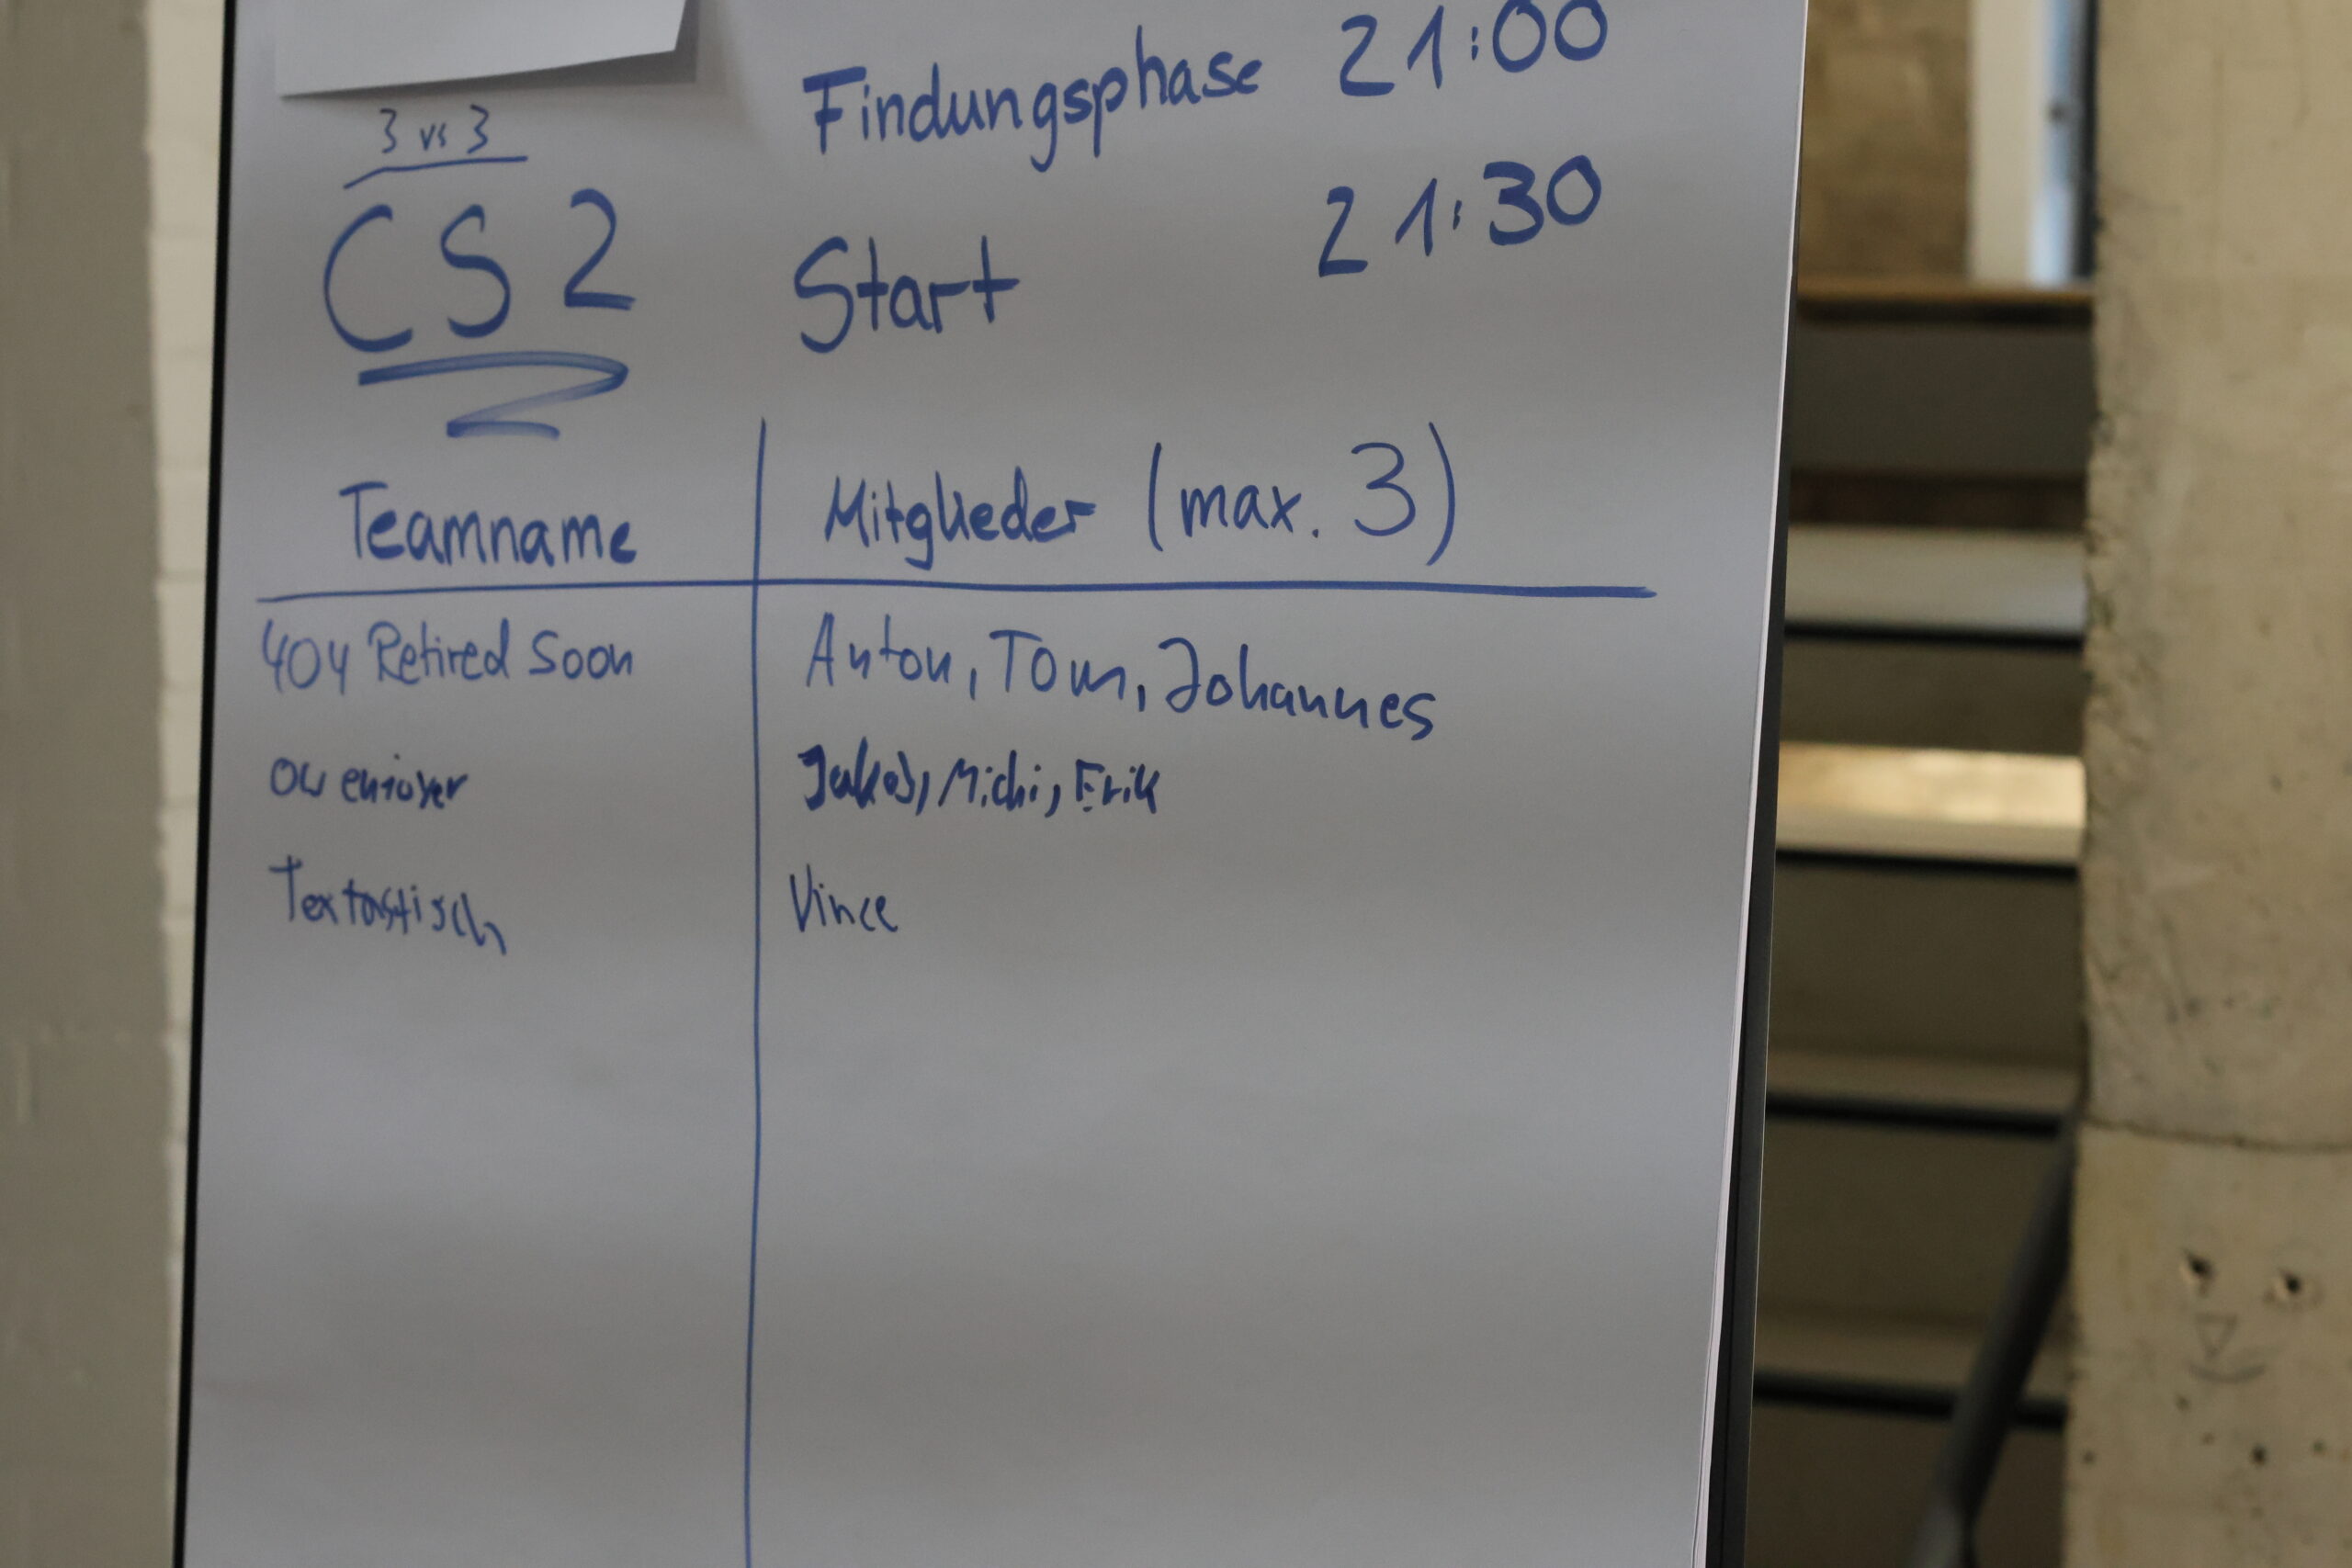 Findungsphase 21:00
3 vs 3
CS2
Start 21:30
Teamname Mitglieder (max. 3)
404 Retired Soon Anton, Tom, Johannes
OW enjoyer Jakob, Michi, Erik
Textastisch Vince